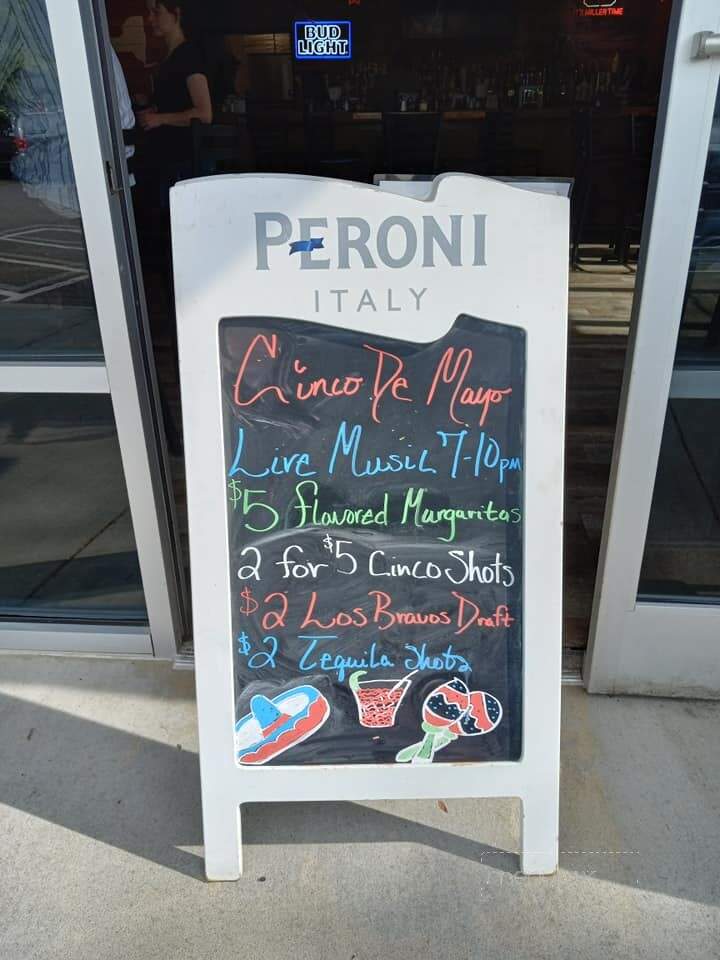 BUD
LIGHT
MILLER TIME
PERONI
ITALY
Cinco De Mayo
Live Music 7-10pm
$5 flavored Margaritas
2 for $5 Cinco Shots
$2 Los Bravos Draft
$2 Tequila Shots